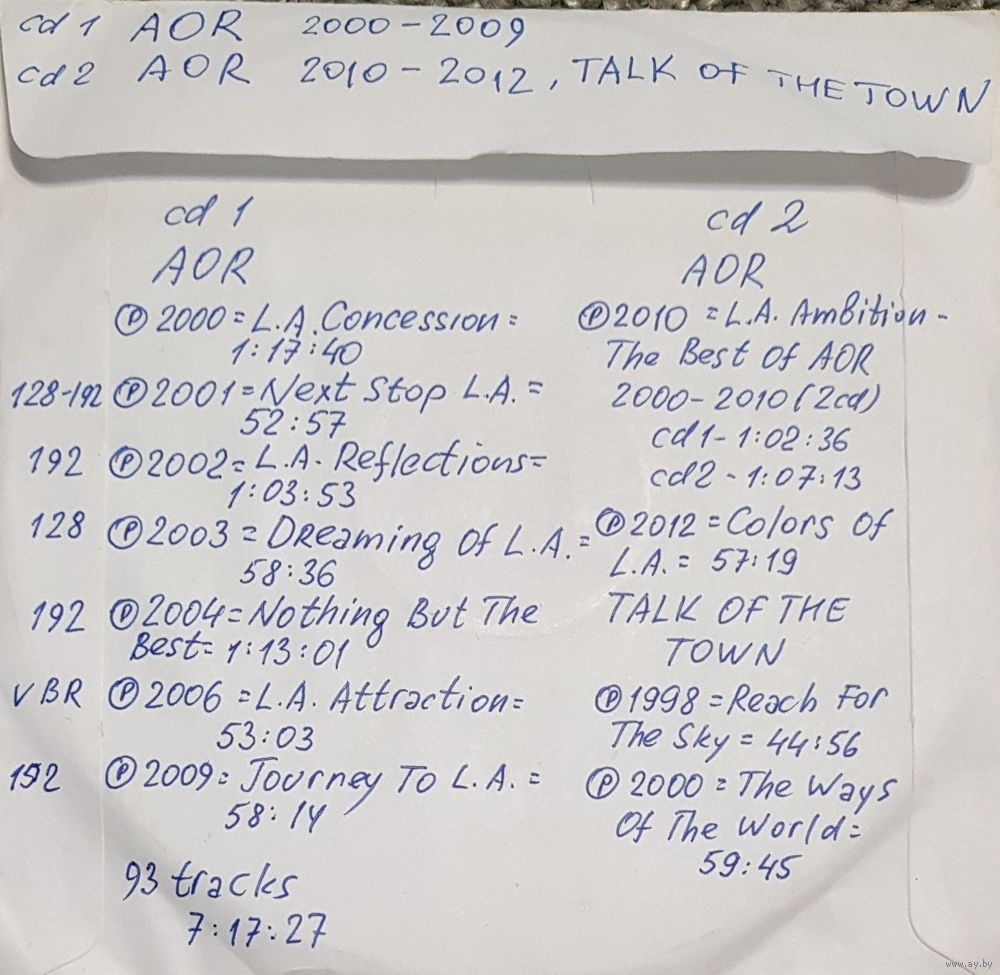 cd 1 AOR 2000-2009
cd 2 AOR 2010-2012, TALK OF THE TOWN
cd 1
AOR
Ⓟ 2000 = L.A. Concession =
1:17:40
128-192 Ⓟ 2001 = Next Stop L.A. =
52:57
192 Ⓟ 2002 = L.A. Reflections =
1:03:53
128 Ⓟ 2003 = Dreaming Of L.A. =
58:36
192 Ⓟ 2004 = Nothing But The
Best = 1:13:01
VBR Ⓟ 2006 = L.A. Attraction =
53:03
192 Ⓟ 2009 = Journey To L.A. =
58:14
93 tracks
7:17:27
cd 2
AOR
Ⓟ 2010 = L.A. Ambition -
The Best Of AOR
2000-2010 (2cd)
cd1 - 1:02:36
cd2 - 1:07:13
Ⓟ 2012 = Colors Of
L.A. = 57:19
TALK OF THE
TOWN
Ⓟ 1998 = Reach For
The Sky = 44:56
Ⓟ 2000 = The Ways
Of The World =
59:45
www.ay.by